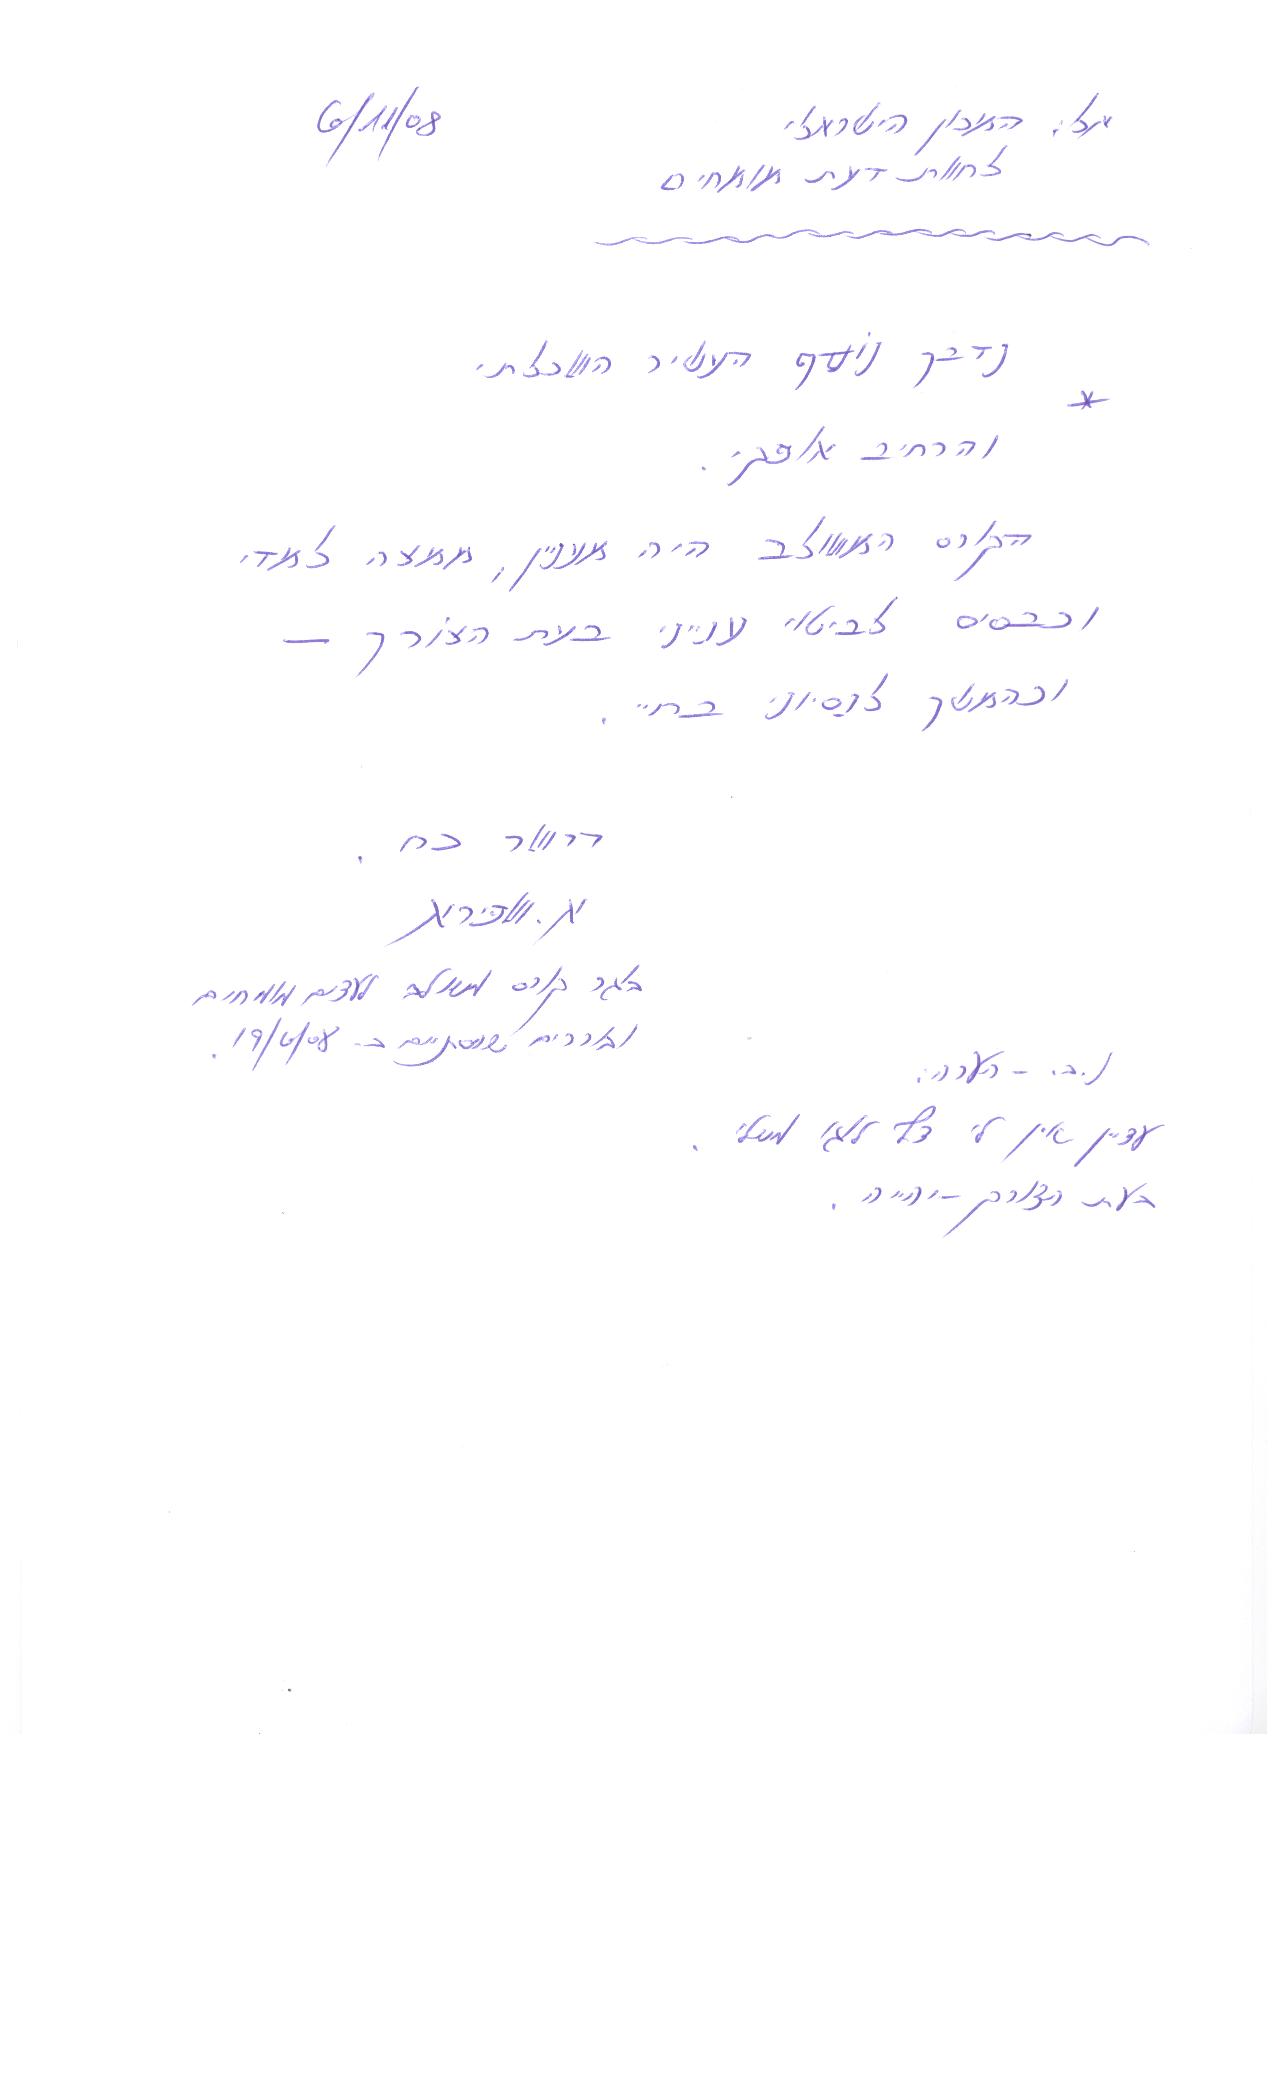 אל: המכון הישראלי 6/11/08
לחוות דעת מומחים
נדבך נוסף העשיר השכלתי
*
והרחיב אופקי.
הקורס המשולב היה מעניין, ממצה למדי
וכבסיס לביטוי ענייני בעת הצורך –
וכהמשך לנסיוני בחיי.
דרישר כח.
א. שפירא
בוגר קורס משולב לעדים מומחים
ובוררים שנסתיים ב- 19/6/08.
נ.ב. - הערה:
עדיין אין לי דף לוגו משלי.
בעת הצורך - יהייה.